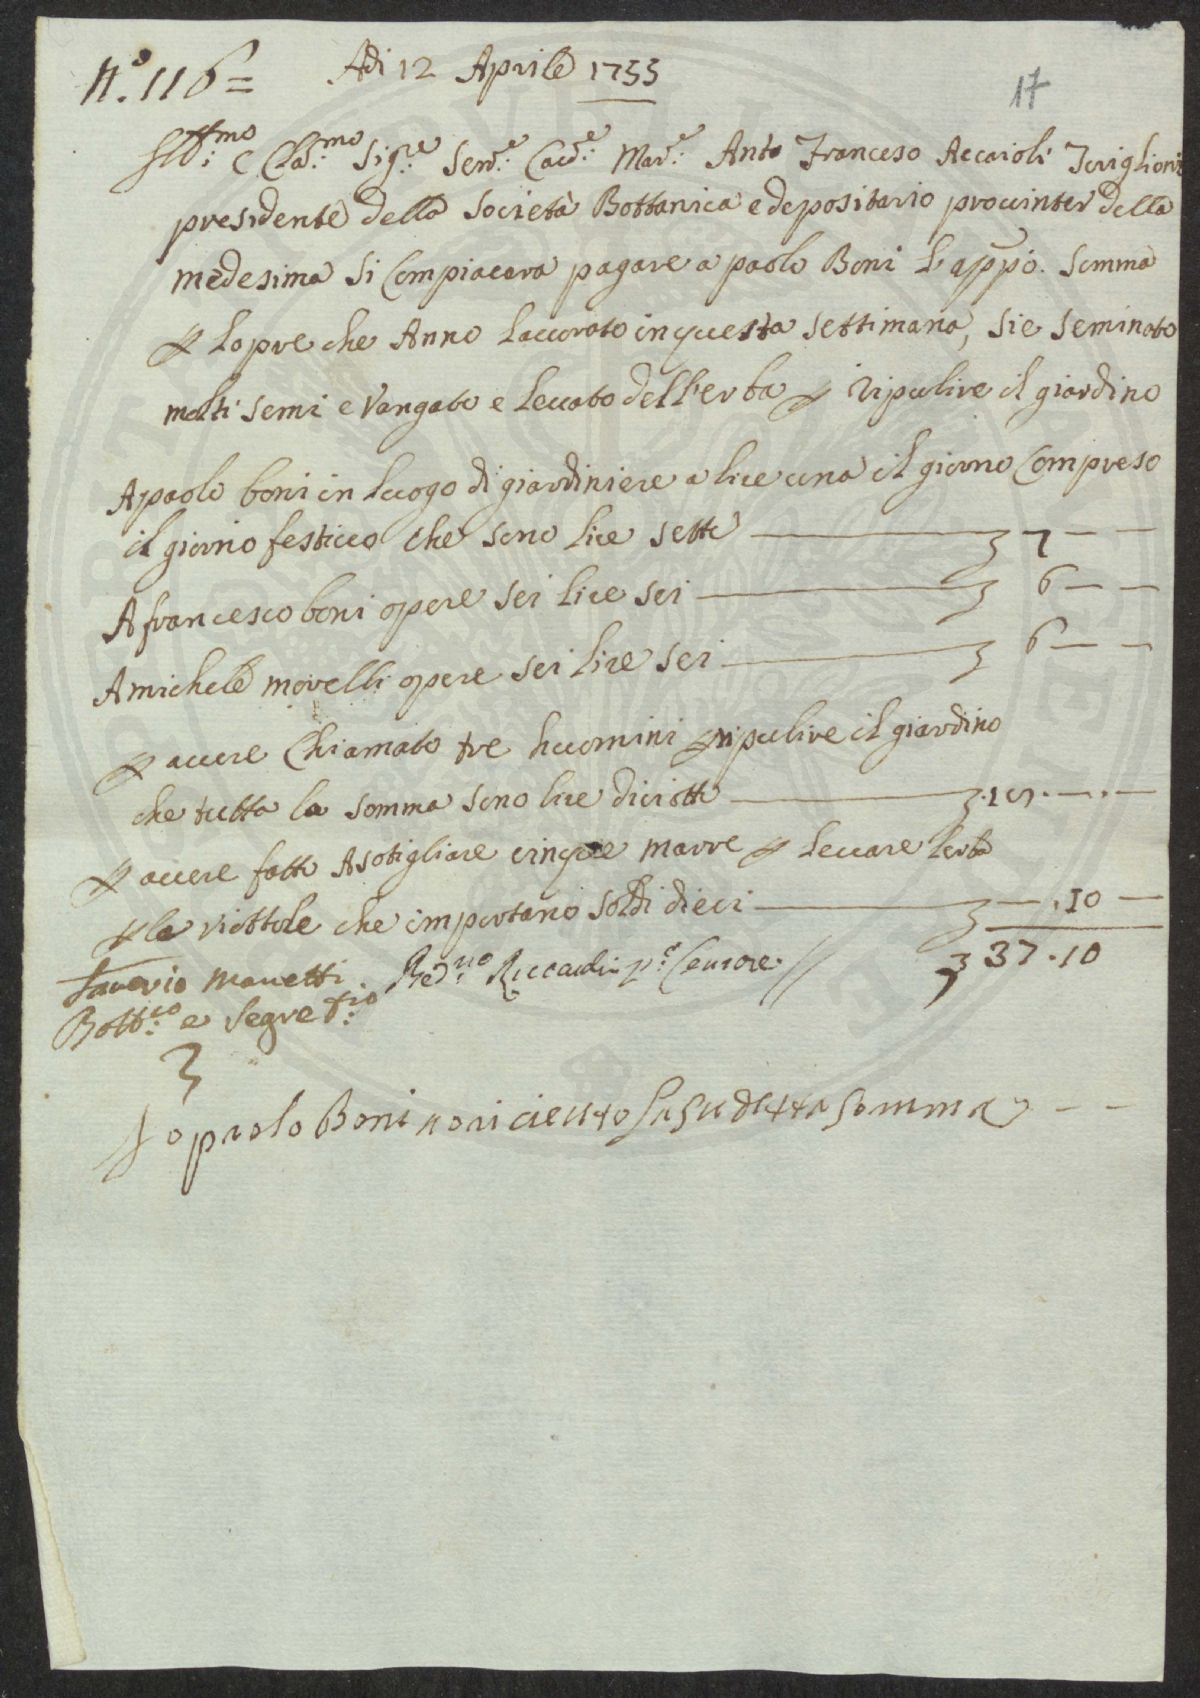 N.º 116 = Adi 12 Aprile 1755
17
Ill:mo e Cla:mo Sig:re Sen:re Cav:e Mar:e Anto Franceso Accaioli Toriglioni
presidente della Società Bottanica e depositario provinter della
medesima si Compiacera pagare a paolo Boni l'appp:o. Somma
p lopre che Anno lavorato in questa settimana, sie seminato
molti semi e Vangato e levato dell'erba p ripulire il giardino
A paolo boni in luogo di giardiniere a lire una il giorno Compreso
il giorno festivo che sono lire sette 7 — —
A francesco boni opere sei lire sei 6 — —
A michele morelli opere sei lire sei 6 — —
p avere Chiamato tre huomini p ripulire il giardino
che tutta la somma sono lire diciotto 18. —. —
p avere fatte Asotigliare cinque marre p levare lerba
p le viottole che importano soldi dieci — .10 —
37.10
Saverio Manetti Bed:no Riccardi p:e Censore //
Bott:co e Segret:rio
Io paolo Boni o riceuto la sudetta somma — —